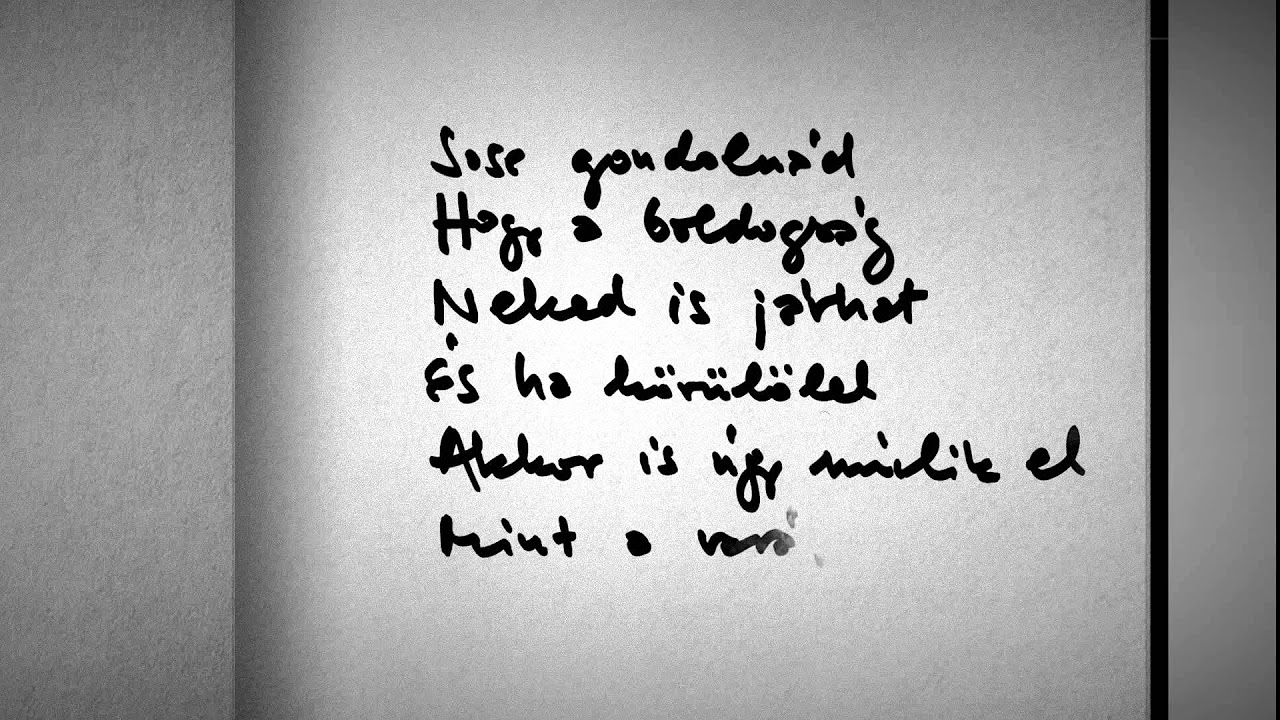 Sose gondolnád
Hogy a boldogság
Neked is járhat
És ha körülölel
Akkor is úgy múlik el
Mint a